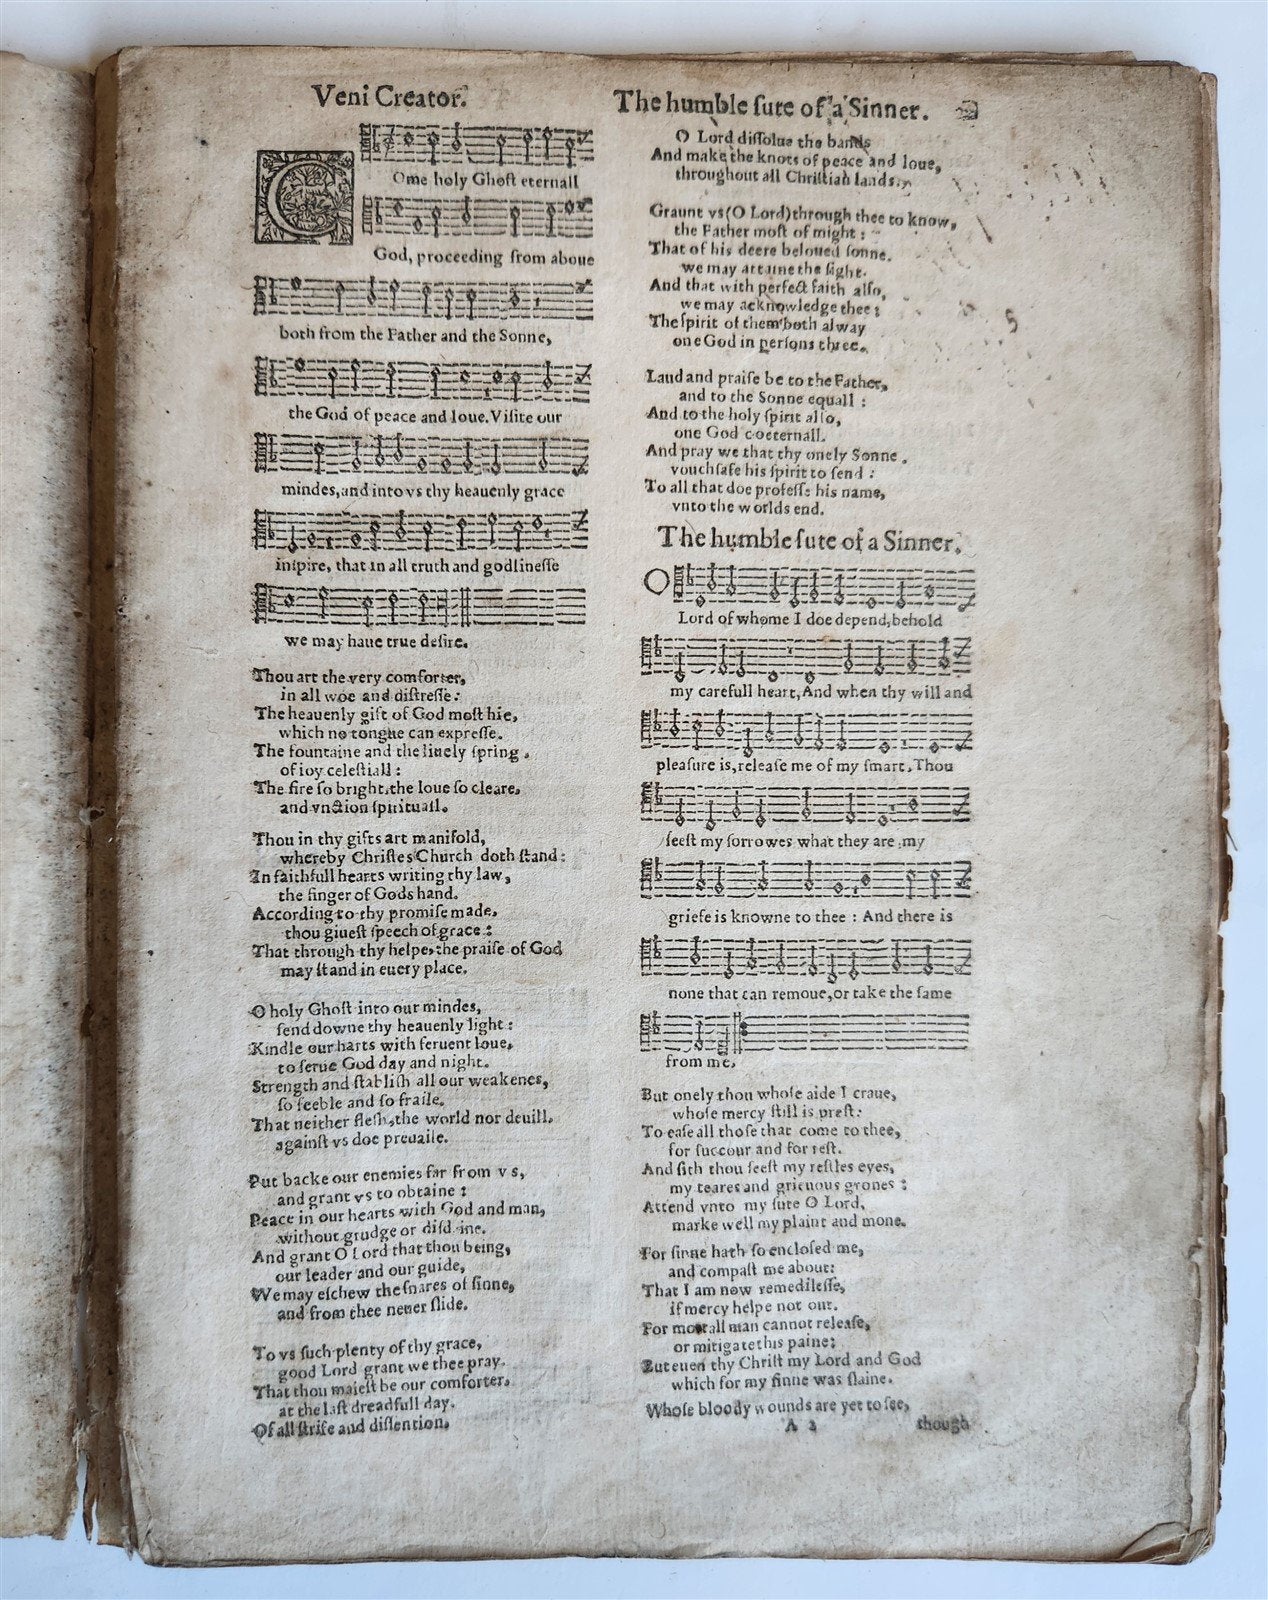 Veni Creator.
Ome holy Ghoſt eternall
God, proceeding from aboue
both from the Father and the Sonne,
the God of peace and loue. Viſite our
mindes, and into vs thy heauenly grace
inſpire, that in all truth and godlineſſe
we may haue true deſire.
Thou art the very comforter,
in all woe and diſtreſſe:
The heauenly gift of God moſt hie,
which no tongue can expreſſe.
The fountaine and the liuely ſpring,
of ioy celeſtiall:
The fire ſo bright, the loue ſo cleare,
and vnction ſpirituall.
Thou in thy gifts art manifold,
whereby Chriſtes Church doth ſtand:
In faithfull hearts writing thy law,
the finger of Gods hand.
According to thy promiſe made,
thou giueſt ſpeech of grace:
That through thy helpe, the praiſe of God
may ſtand in euery place.
O holy Ghoſt into our mindes,
ſend downe thy heauenly light:
Kindle our harts with feruent loue,
to ſerue God day and night.
Strength and ſtabliſh all our weakenes,
ſo feeble and ſo fraile.
That neither fleſh, the world nor deuill.
againſt vs doe preuaile.
Put backe our enemies far from vs,
and grant vs to obtaine:
Peace in our hearts with God and man,
without grudge or diſdaine.
And grant O Lord that thou being,
our leader and our guide,
We may eſchew the ſnares of ſinne,
and from thee neuer ſlide.
To vs ſuch plenty of thy grace,
good Lord grant we thee pray.
That thou maieſt be our comforter,
at the laſt dreadfull day.
Of all ſtrife and diſſention,
The humble ſute of a Sinner.
O Lord diſſolue the bands
And make the knots of peace and loue,
throughout all Chriſtian lands.
Graunt vs (O Lord) through thee to know,
the Father moſt of might:
That of his deere beloued ſonne,
we may attaine the ſight.
And that with perfect faith alſo,
we may acknowledge thee:
The ſpirit of them both alway
one God in perſons three.
Laud and praiſe be to the Father,
and to the Sonne equall:
And to the holy ſpirit alſo,
one God coeternall.
And pray we that thy onely Sonne,
vouchſafe his ſpirit to ſend:
To all that doe profeſſe his name,
vnto the worlds end.
The humble ſute of a Sinner.
O
Lord of whome I doe depend, behold
my carefull heart, And when thy will and
pleaſure is, releaſe me of my ſmart, Thou
ſeeſt my ſorrowes what they are, my
griefe is knowne to thee: And there is
none that can remoue, or take the ſame
from me,
But onely thou whoſe aide I craue,
whoſe mercy ſtill is preſt:
To eaſe all thoſe that come to thee,
for ſuccour and for reſt.
And ſith thou ſeeſt my reſtles eyes,
my teares and grieuous grones:
Attend vnto my ſute O Lord,
marke well my plaint and mone.
For ſinne hath ſo encloſed me,
and compaſt me about:
That I am now remedileſſe,
if mercy helpe not out.
For mortall man cannot releaſe,
or mitigate this paine:
But euen thy Chriſt my Lord and God
which for my ſinne was ſlaine.
Whoſe bloody wounds are yet to ſee,
A 2 though